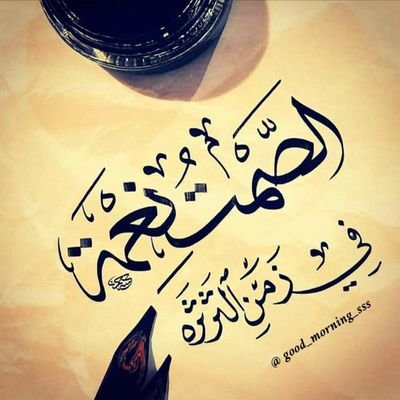 الصَّمتُ نغمة
فِي زَمَنِ الثرثره
@ good_morning_sss